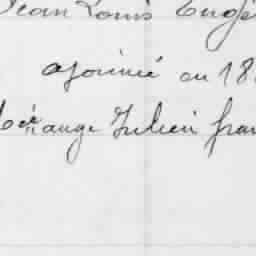 Jean Louis Eugè
ajourné au 18
ange Julien fran